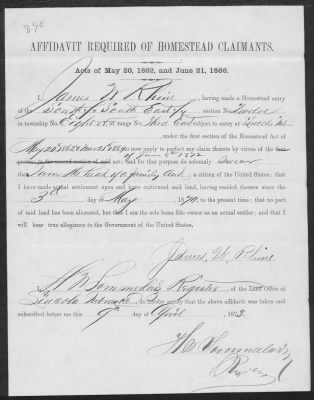 890
AFFIDAVIT REQUIRED OF HOMESTEAD CLAIMANTS.
Acts of May 20, 1862, and June 21, 1866.
I, James W Rhine, having made a Homestead entry
of the South ½ South East ¼ section No. Twelve
in township No. Eight N of range No. Three East subject to entry at Lincoln Neb
, under the first section of the Homestead Act of
May 20, 1862 do now apply to perfect my claim thereto by virtue of the
of June 8th 1872
act: and for that purpose do solemnly Swear
I am the head of a family and a citizen of the United States; that I
have made actual settlement upon and have cultivated said land, having resided thereon since the
3rd day of May 1870, to the present time; that no part
of said land has been alienated, but that I am the sole bona fide owner as an actual settler; and that I
will bear true allegiance to the Government of the United States.
James. W. Rhine
Register of the Land Office at
Lincoln Nebraska do certify that the above affidavit was taken and
subscribed before me this 9th day of April, 1873.